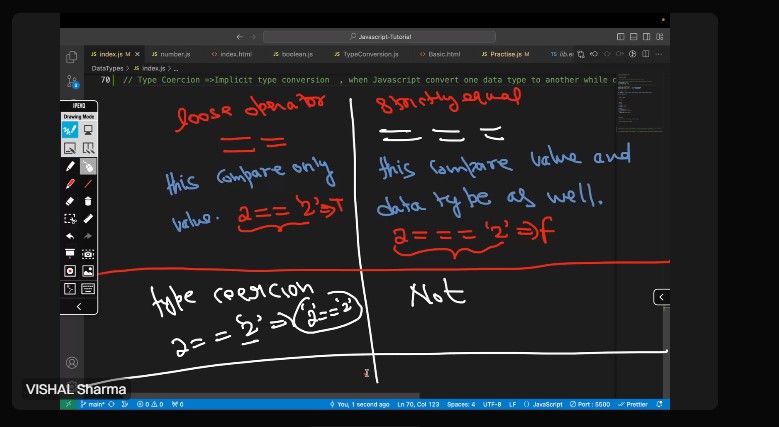 Javascript-Tutorial
JS index.js M × JS number.js <> index.html JS boolean.js JS TypeConversion.js <> Basic.html JS Practise.js M TS
DataTypes > JS index.js > ...
70 // Type Coercion =>Implicit type conversion , when Javascript convert one data type to another while c
IPEVO
Drawing Mode
loose operator
strictly equal
==
===
this compare only
value. 2=='2'=>T
this compare value and
data type as well.
2==='2'=>f
type coercion
2=='2'=>'2'=='2'
Not
VISHAL Sharma
main* 0 0 0 You, 1 second ago Ln 70, Col 123 Spaces: 4 UTF-8 LF {} JavaScript Port : 5500 Prettier